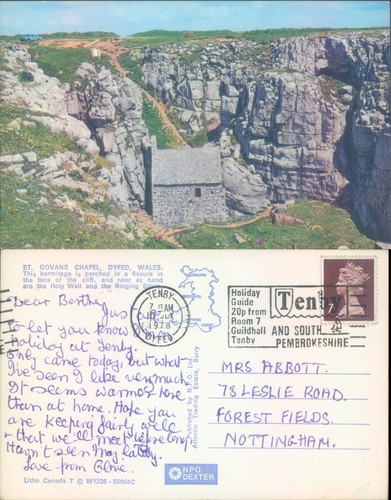 ST. GOVANS CHAPEL, DYFED, WALES.
This hermitage is perched in a fissure in
the face of the cliff, and near at hand
are the Holy Well and the Ringing
Dear Bertha, Just
to let you know
holiday at Tenby.
Only came today, but what
I've seen I like very much
It seems warmer here
than at home. Hope you
are keeping fairly well
& that we'll meet before long
Haven't seen May lately.
Love from Olive.
TENBY
7.15AM
1978
DYFED
Holiday
Guide
20p from
Room 7
Guildhall
Tenby
Tenby
AND SOUTH
PEMBROKESHIRE
7
Published by N.P.O. Ltd.
Atlantic Trading Estate, Barry
MRS ABBOTT.
78 LESLIE ROAD.
FOREST FIELDS.
NOTTINGHAM.
Litho Canada T © W1226 - 55904C
NPO
DEXTER